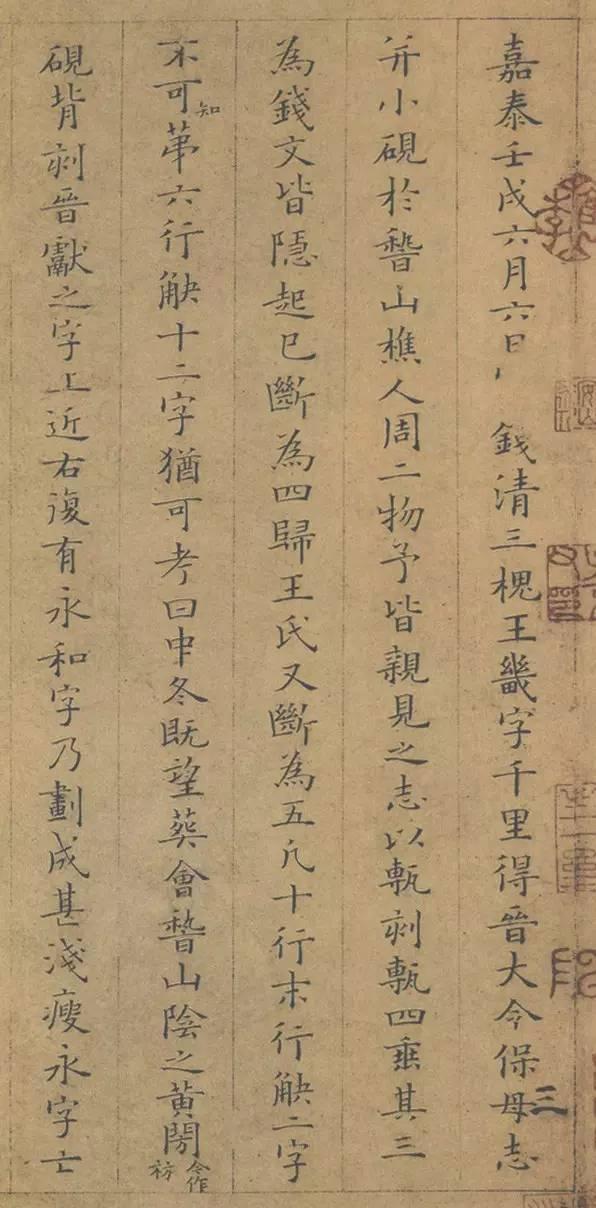 嘉泰壬戌六月六日錢清三槐王畿字千里得晉大令保母志
并小硯於稽山樵人周二物予皆親見之志以甎刻甎四垂其三
為錢文皆隱起已斷為四歸王氏又斷為五凡十行末行缺二字
不可知苐六行缺十二字猶可考曰中冬既望葬會稽山陰之黃閍合作祊
硯背刻晉獻之字上近右復有永和字乃劃成甚淺瘦永字亡